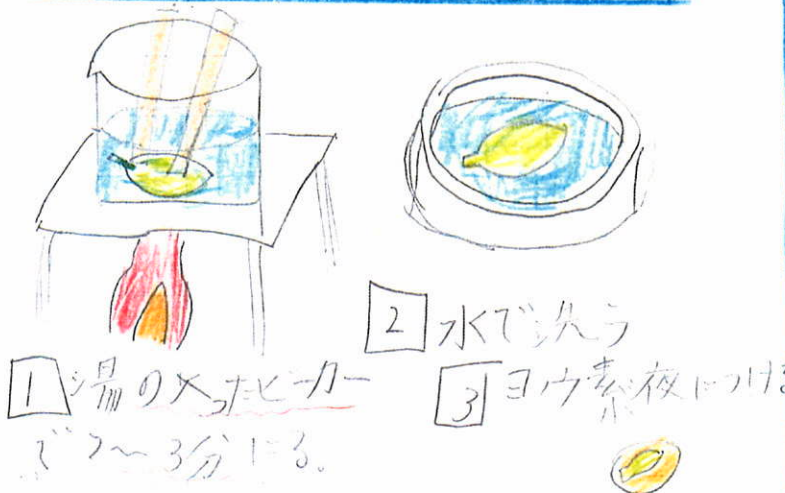 1 湯の入ったビーカー
で2〜3分にる。
2 水で洗う
3 ヨウ素夜につける